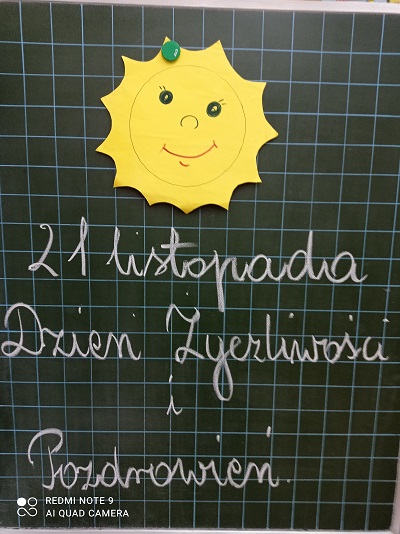 21 listopada
Dzień Życzliwości
i
Pozdrowień.
REDMI NOTE 9
AI QUAD CAMERA